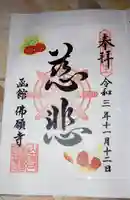 奉拝
令和三年十一月十二日
慈悲
函館
佛願寺